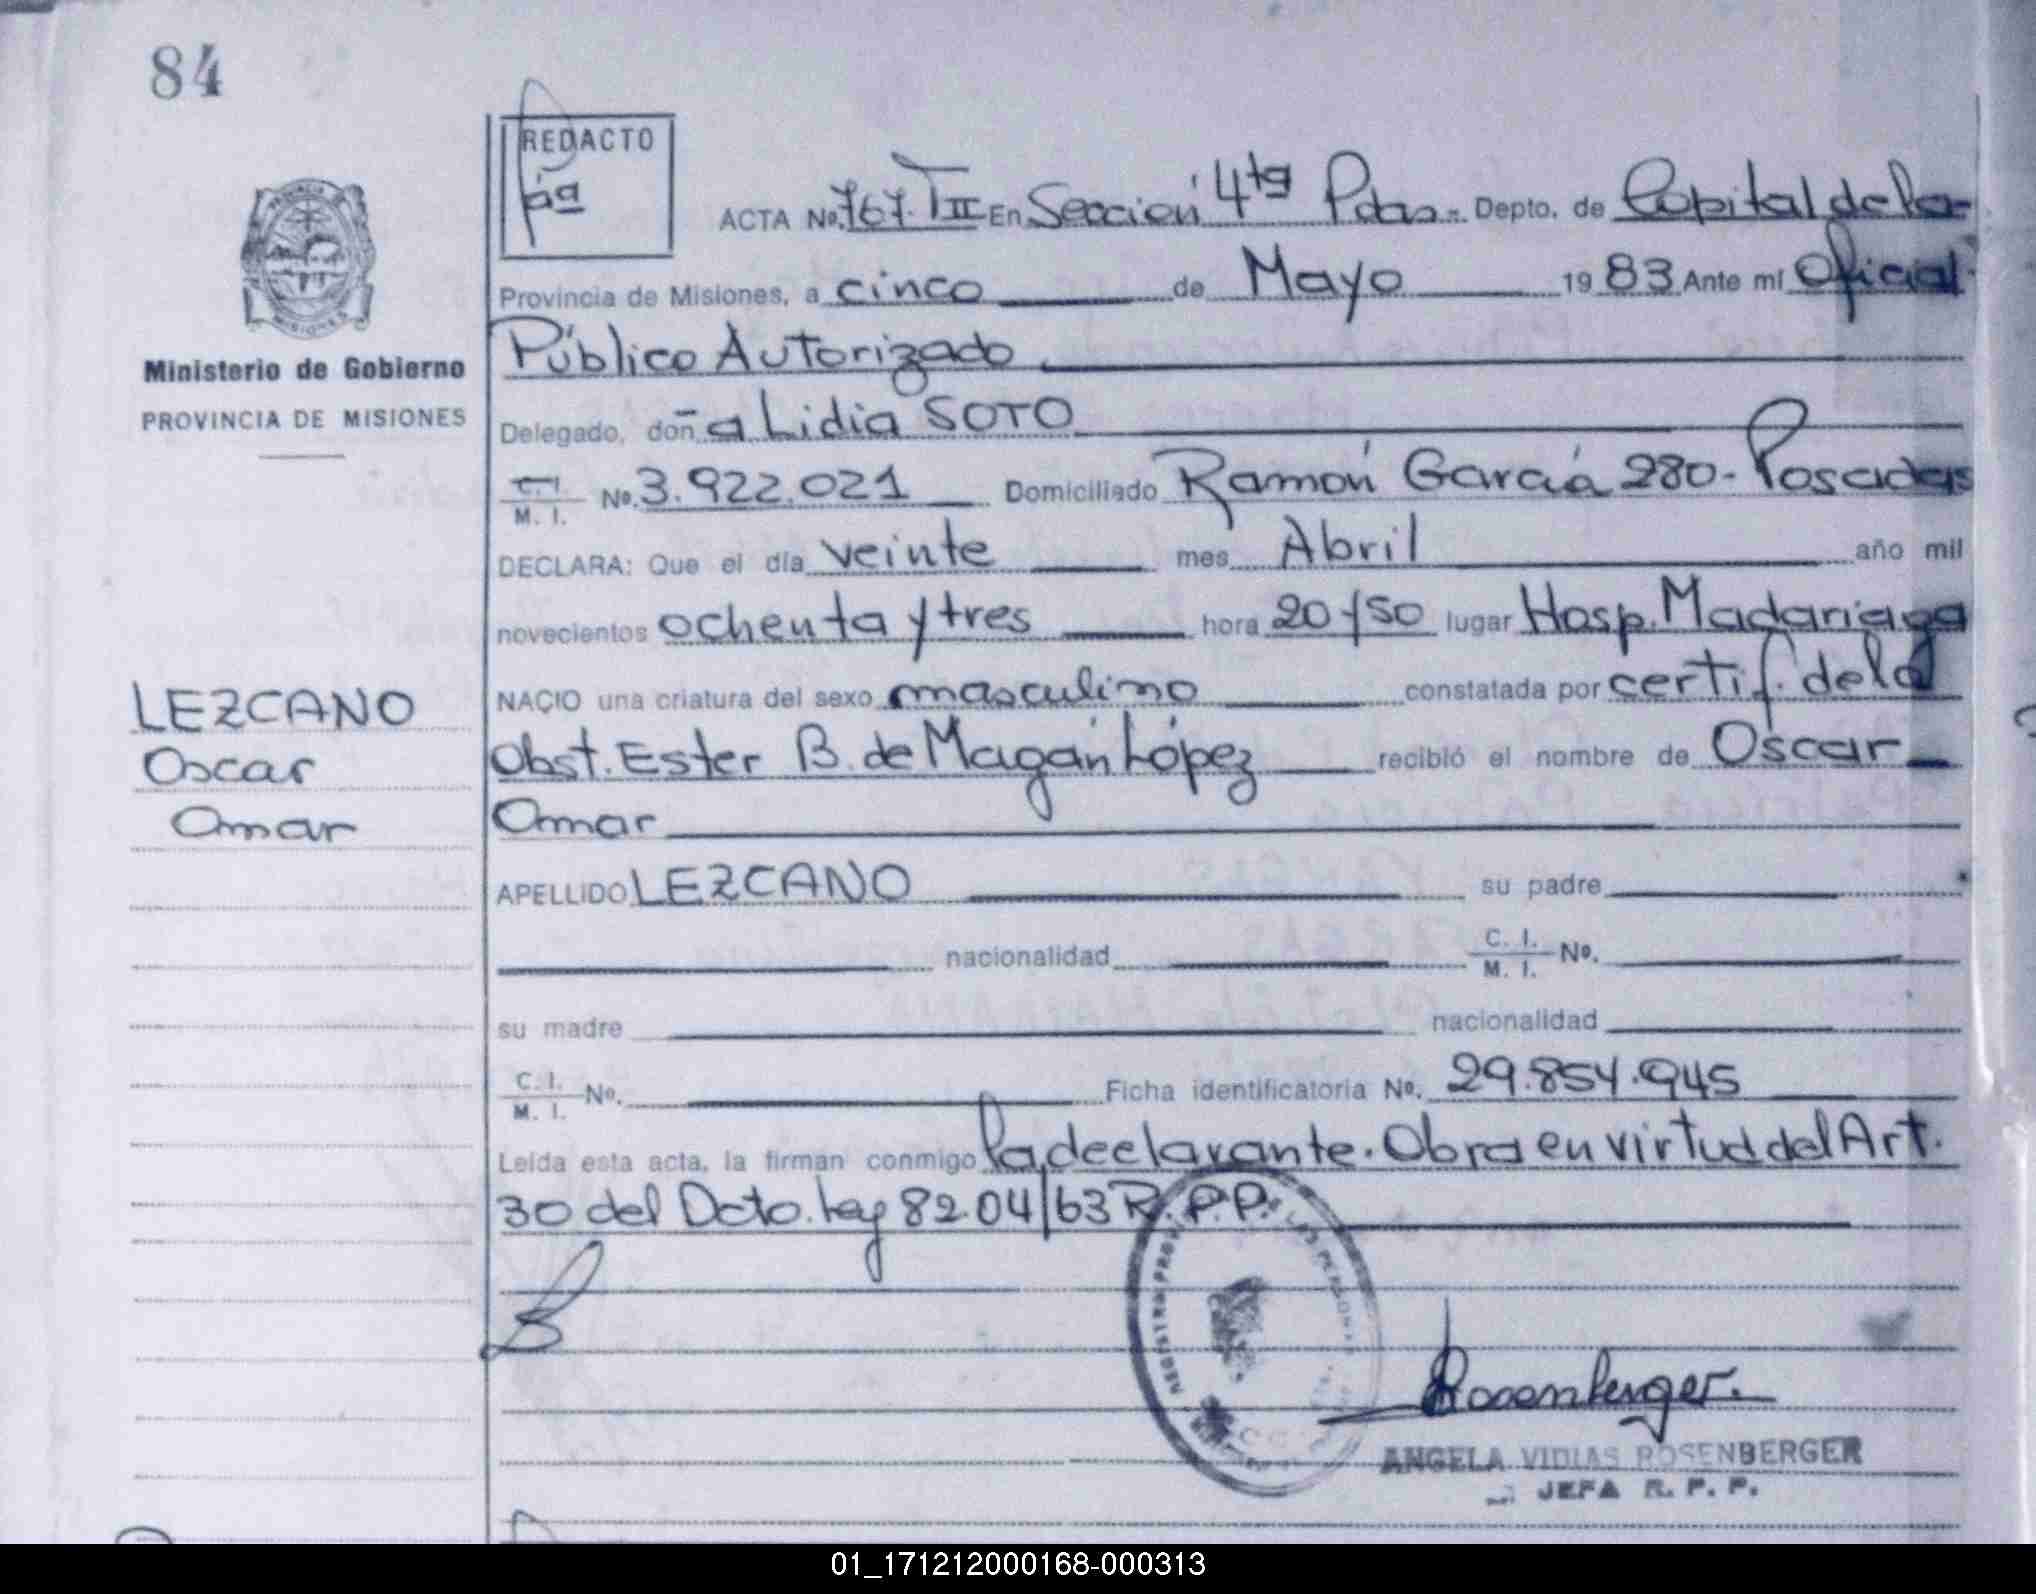 84
REDACTO
ACTA No. 767. T II En Sección 4ta Pdas.- Depto. de Capital de la
Provincia de Misiones, a cinco de Mayo 1983 Ante mí Oficial
Público Autorizado
Ministerio de Gobierno
PROVINCIA DE MISIONES
Delegado, doña Lidia SOTO
C. I. M. I. No. 3.922.021 Domiciliado Ramón García 280- Posadas
DECLARA: Que el día veinte mes Abril año mil
novecientos ochenta y tres hora 20 y 50 lugar Hosp. Madariaga
NACIO una criatura del sexo masculino constatada por certif. de la
Obst. Ester B. de Magán López recibió el nombre de Oscar
Omar
LEZCANO
Oscar
Omar
APELLIDO LEZCANO su padre
nacionalidad C. I. M. I. No.
su madre nacionalidad
C. I. M. I. No. Ficha identificatoria No. 29.854.945
Leída esta acta, la firman conmigo la declarante. Obra en virtud del Art.
30 del Dcto. Ley 82.04/63 R.P.P.
Rosenberger.
ANGELA VIDIAS ROSENBERGER
JEFA R. P. P.
01_171212000168-000313